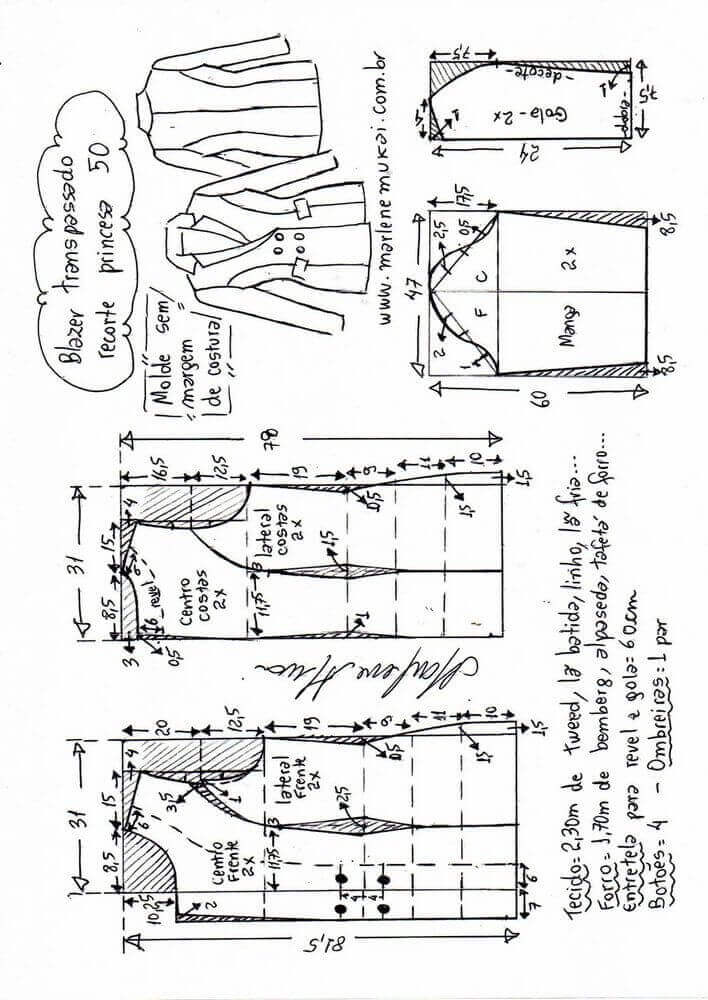 Blazer transpassado
recorte princesa 50
Molde sem
margem
de costura
www.marlenemukai.com.br
7,5
decote
4
1
1
Gola - 2x
7,5
24
47
17,5
2,5
0,5
2
1
F C
Manga 2x
60
8,5
8,5
31
8,5 15 4
3
16,5
12,5
19
9
11
10
78
6 revel
0,5
Centro
costas
2x
lateral
costas
2x
11,75 3
1,5
0,5
1
1,5
1,5
31
8,5 15 4
6
10,25
20
12,5
19
9
11
10
81,5
3,5
1
2
Centro
Frente
2x
lateral
Frente
2x
11,75 3
2,5
0,5
1,5
1,5
4
4
4
7 6
Tecido=2,30m de tweed, lã batida, linho, lã fria...
Forro=1,70m de bemberg, alpaseda, tafetá de forro...
Entretela para revel e gola=60cm
Botões=4 - Ombreiras=1 par